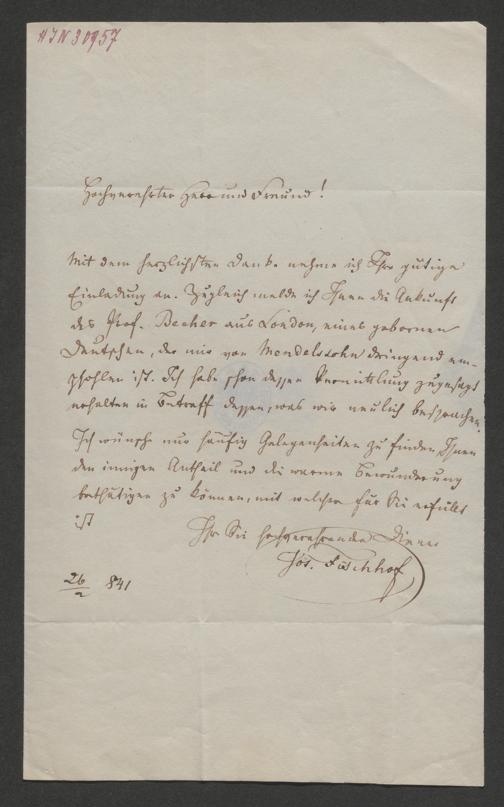 HIN 30957
Hochverehrter Herr und Freund!
Mit dem herzlichsten Danke nehme ich Ihre gütige
Einladung an. Zugleich melde ich Ihnen die Ankunft
des Prof. Becher aus London, eines gebornen
Deutschen, der mir von Mendelssohn dringend em-
pfohlen ist. Ich habe schon dessen Vermittlung zugesagt
erhalten in Betreff dessen, was wir neulich besprachen.
Ich wünsche nur häufig Gelegenheiten zu finden, Ihnen
den innigen Antheil und die warme Bewunderung
bethätigen zu können, mit welcher für Sie erfüllt
ist
Ihr Sie hochverehrender Diener
Jos. Fischhof
26/2 841